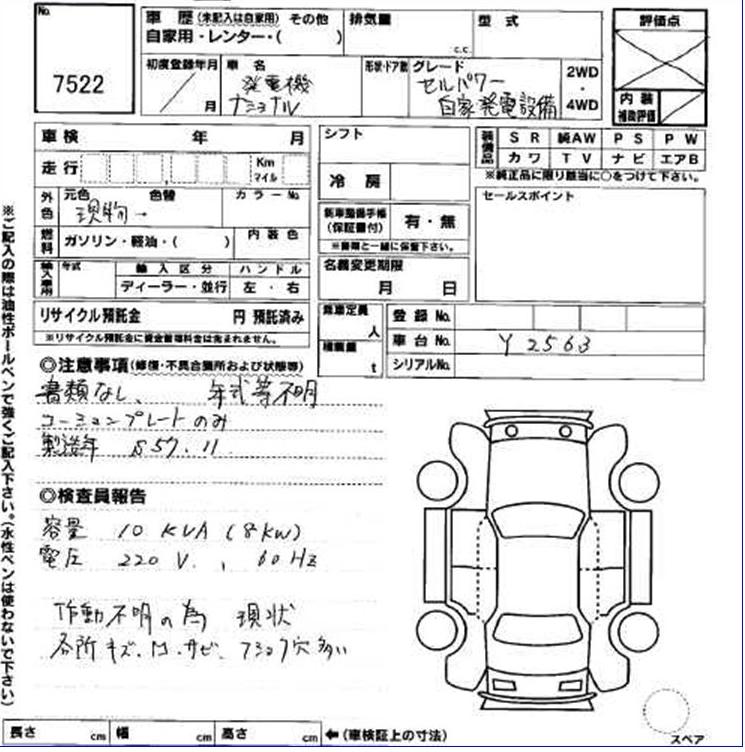 No.
7522
車 歴 (未記入は自家用) その他
自家用・レンター・( )
排気量
c.c.
型 式
評価点
初度登録年月
月
車 名
発電機
ナショナル
形状・ドア数
グレード
セルパワー
自家発電設備
2WD
・
4WD
内 装
補助評価
車検 年 月
走行 Km
マイル
外色
元色 色替 カラーNo.
現物 →
燃料
ガソリン・軽油・( )
内 装 色
輸入車用
年式 輸 入 区 分 ハ ン ド ル
ディーラー・並行 左 ・ 右
シフト
冷 房
新車整備手帳
(保証書付)
有・無
※書類と一緒に保管下さい。
名義変更期限
月 日
装備品
S R 純AW P S P W
カワ T V ナビ エアB
※純正品に限り該当に○をつけて下さい。
セールスポイント
リサイクル預託金 円 預託済み
※リサイクル預託金に資金管理料金は含まれません。
乗車定員
人
積載量
t
登 録 No.
車 台 No. Y 2563
シリアルNo.
◎注意事項 (修復・不具合箇所および状態等)
書類なし、 年式等不明
コーションプレートのみ
製造年 S57.11
◎検査員報告
容量 10 KVA (8KW)
電圧 220 V. , 60 Hz
作動不明の為 現状
各所キズ、凹、サビ、フミック穴多い
※ご記入の際は油性ボールペンで強くご記入下さい。(水性ペンは使わないで下さい)
スペア
長さ cm 幅 cm 高さ cm ←(車検証上の寸法)